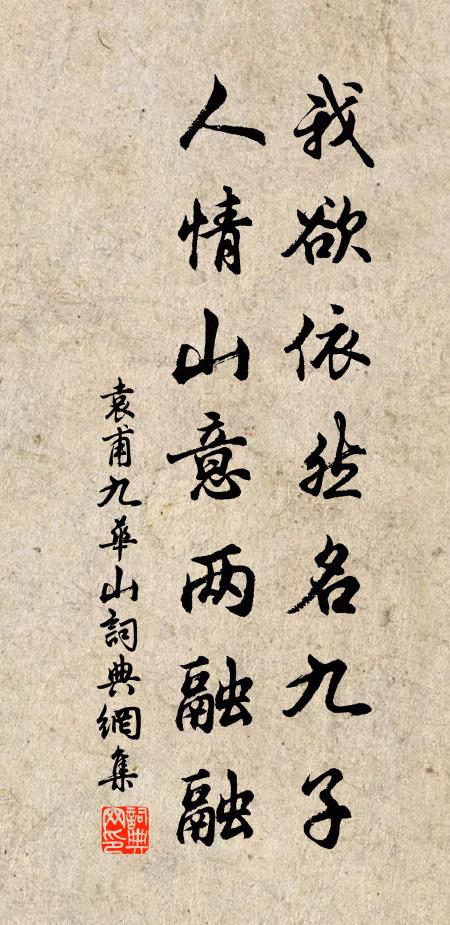 我欲依然名九子
人情山意两融融
袁甫九華山詞典網集
詞典网印